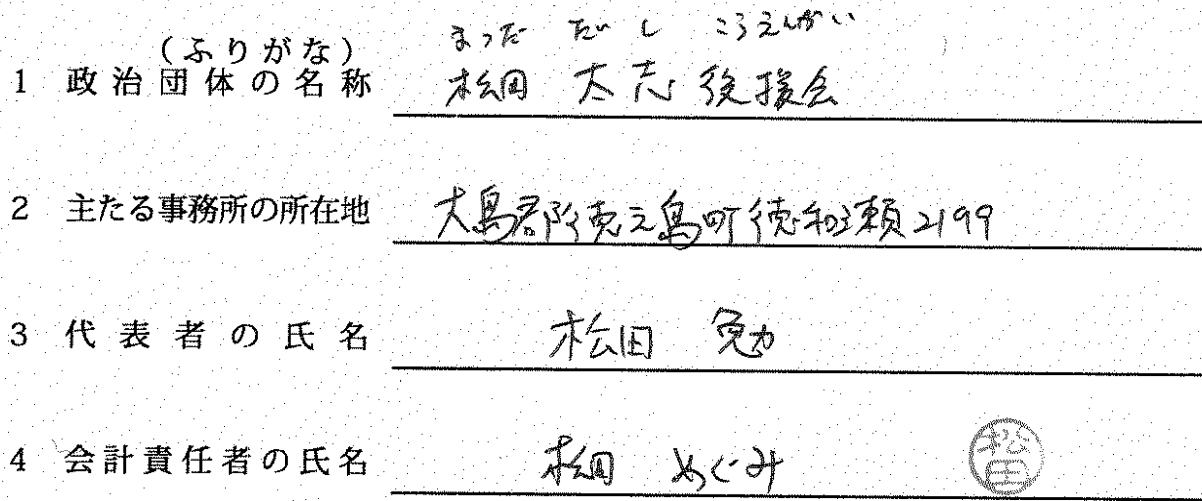 (ふりがな) まつだ だいし こうえんかい
1 政治団体の名称 松田 太志 後援会
2 主たる事務所の所在地 大島郡徳之島町徳和瀬2199
3 代表者の氏名 松田 勉
4 会計責任者の氏名 松田 めぐみ
松田